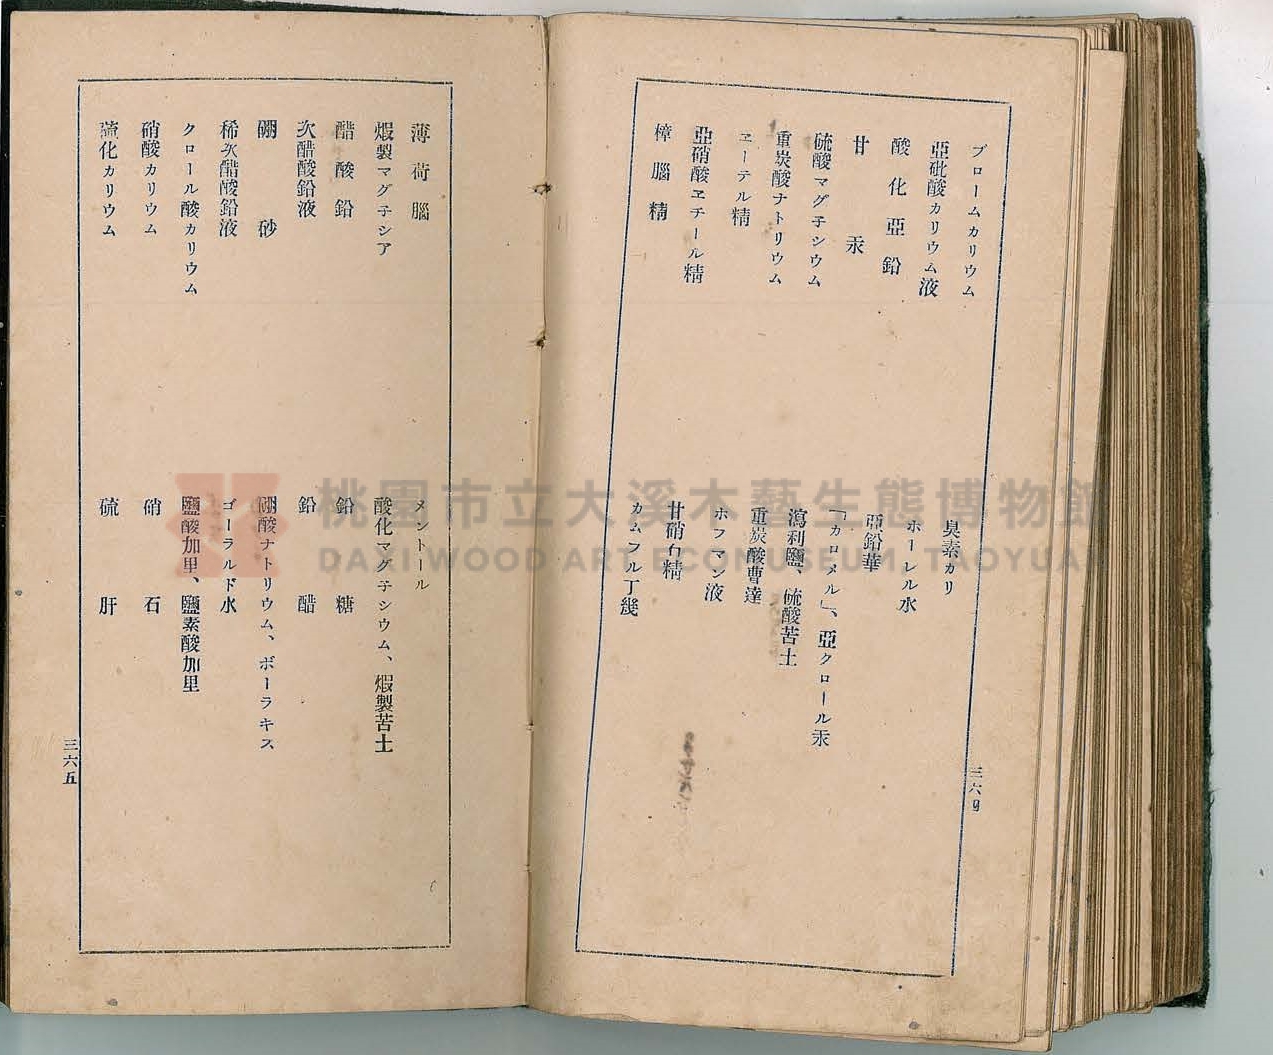 ブロームカリウム　臭素カリ
亞砒酸カリウム液　ホーレル水
酸化亞鉛　亞鉛華
甘汞　「カロメル」、亞クロール汞
硫酸マグ子シウム　瀉利鹽、硫酸苦土
重炭酸ナトリウム　重炭酸曹達
ヱーテル精　ホフマン液
亞硝酸ヱチール精　甘硝石精
樟腦精　カムフル丁幾
三六四
薄荷腦　メントール
煆製マグ子シア　酸化マグ子シウム、煆製苦土
醋酸鉛　鉛糖
次醋酸鉛液　鉛醋
硼砂　硼酸ナトリウム、ボーラキス
稀次醋酸鉛液　ゴーラルド水
クロール酸カリウム　鹽酸加里、鹽素酸加里
硝酸カリウム　硝石
硫化カリウム　硫肝
三六五
桃園市立大溪木藝生態博物館
DAXI WOOD ART ECOMUSEUM, TAOYUAN